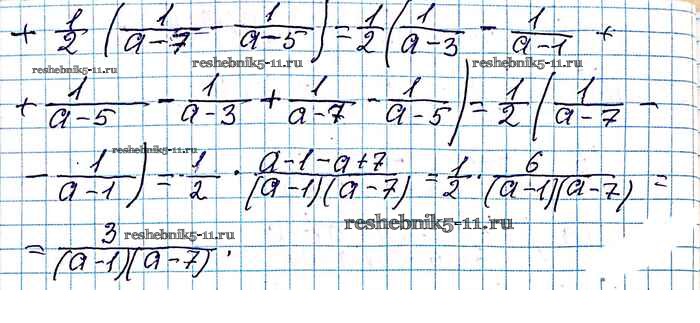 + 1/2 (1/(a-7) - 1/(a-5)) = 1/2 (1/(a-3) - 1/(a-1) +
reshebnik5-11.ru reshebnik5-11.ru reshebnik5-11.ru
+ 1/(a-5) - 1/(a-3) + 1/(a-7) - 1/(a-5)) = 1/2 (1/(a-7) -
reshebnik5-11.ru
- 1/(a-1)) = 1/2 · (a-1-a+7)/((a-1)(a-7)) = 1/2 · 6/((a-1)(a-7)) =
reshebnik5-11.ru
= 3/((a-1)(a-7)).
reshebnik5-11.ru